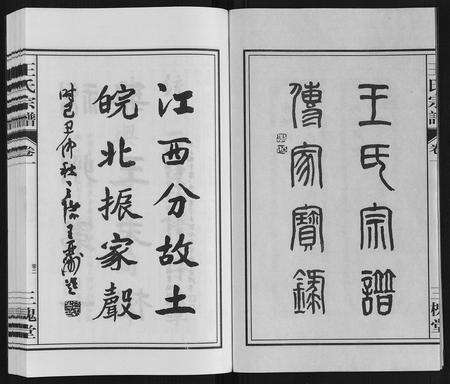 王氏宗譜
傳家寶錄
江西分故土
皖北振家聲
時己丑仲秋
王氏宗譜
卷
三槐堂